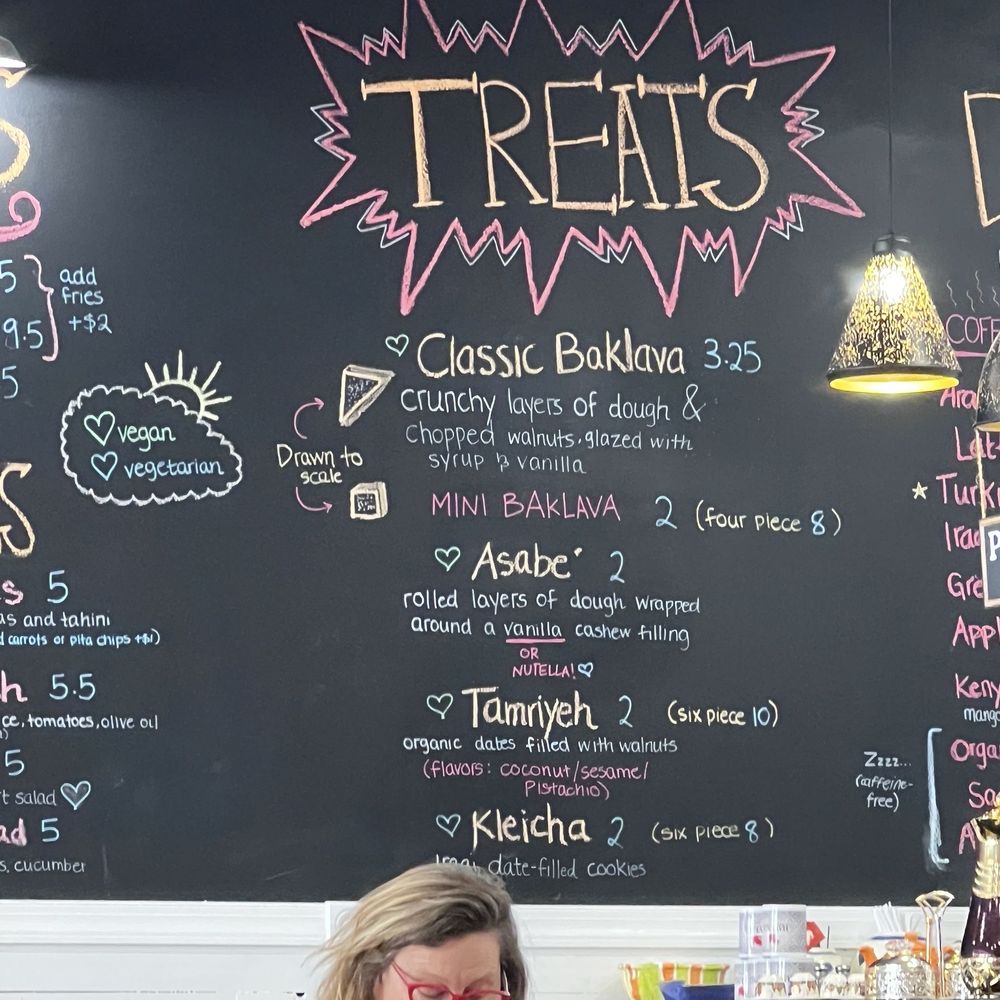 TREATS
Classic Baklava 3.25
crunchy layers of dough &
chopped walnuts, glazed with
syrup & vanilla
Drawn to
scale
MINI BAKLAVA 2 (four piece 8)
Asabe' 2
rolled layers of dough wrapped
around a vanilla cashew filling
OR
NUTELLA!
Tamriyeh 2 (six piece 10)
organic dates filled with walnuts
(flavors: coconut/sesame/
Pistachio)
Kleicha 2 (six piece 8)
date-filled cookies
S
5
9.5
5
add
fries
+$2
vegan
vegetarian
S
s 5
as and tahini
carrots or pita chips +$1)
h 5.5
ce, tomatoes, olive oil
5
t salad
ad 5
s, cucumber
COFF
Ara
Lat
Turk
Ira
Gre
P
Appl
Keny
mang
Orga
Sa
A
Zzzz...
(caffeine-
free)